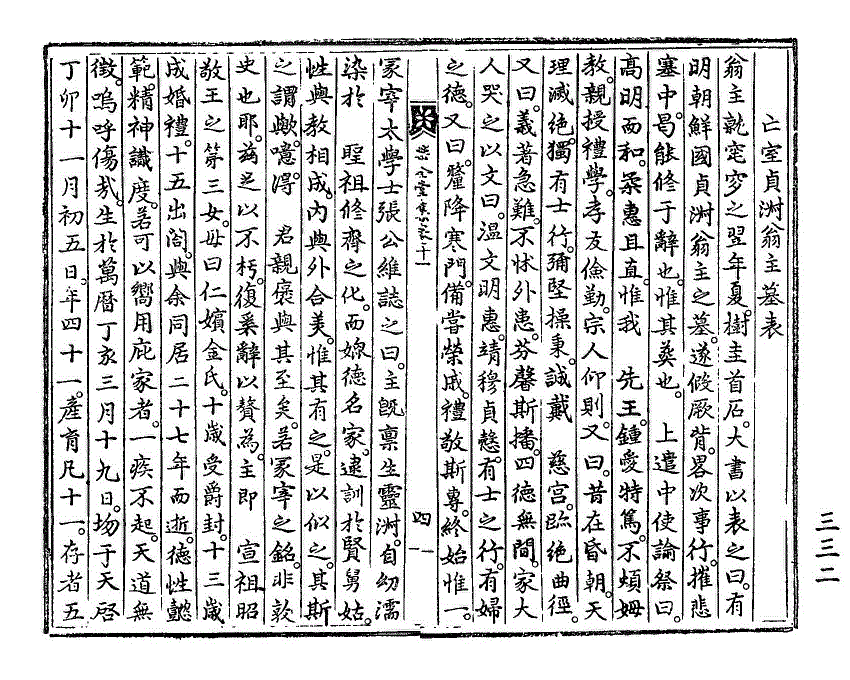 亡室貞淑翁主墓表
翁主就窀穸之翌年夏。樹圭首石。大書以表之曰。有
明朝鮮國貞淑翁主之墓。遂假厥背。畧次事行。摧悲
塞中。曷能修于辭也。惟其葬也。 上遣中使諭祭曰。
高明而和。柔惠且直。惟我 先王。鍾愛特篤。不煩姆
教。親授禮學。孝友儉勤。宗人仰則。又曰。昔在昏朝。天
理滅絶。獨有士行。彌堅操秉。誠戴 慈宮。臨絶曲徑。
又曰。義著急難。不怵外患。芬馨斯播。四德無間。家大
人哭之以文曰。溫文明惠。靖穆貞懿。有士之行。有婦
之德。又曰。釐降寒門。備嘗榮戚。禮敬斯專。終始惟一。
樂全堂集卷之十一
四
冢宰太學士張公維誌之曰。主旣稟生靈淑。自幼濡
染於 聖祖修齊之化。而嫁德名家。逮訓於賢舅姑。
性與教相成。內與外合美。惟其有之。是以似之。其斯
之謂歟。噫。得 君親褒與其至矣。若冢宰之銘。非敦
史也耶。玆足以不朽。復奚辭以贅爲。主卽 宣祖昭
敬王之第三女。母曰仁嬪金氏。十歲受爵封。十三歲
成婚禮。十五出閤。與余同居二十七年而逝。德性懿
範。精神識度。若可以嚮用庇家者。一疾不起。天道無
徵。嗚呼傷哉。生於萬曆丁亥三月十九日。歿于天啓
丁卯十一月初五日。年四十一。產育凡十一。存者五
三三二